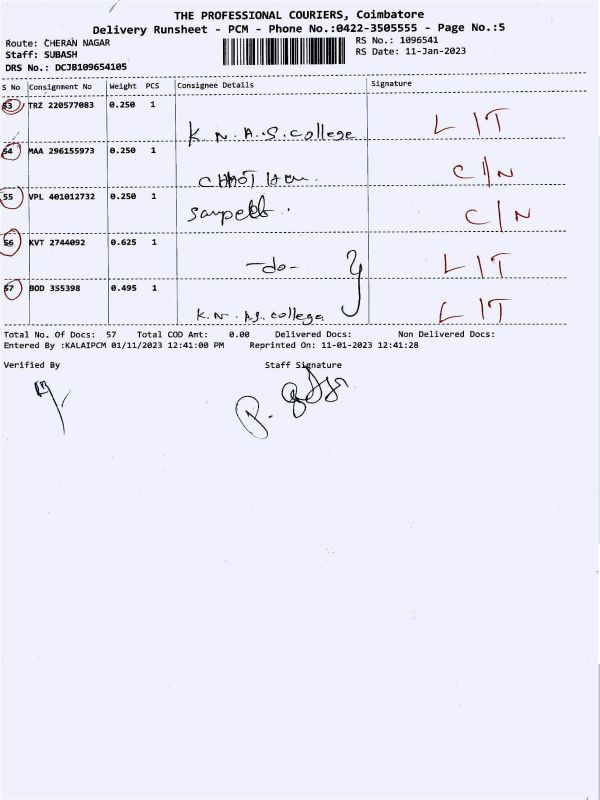 THE PROFESSIONAL COURIERS, Coimbatore
Delivery Runsheet - PCM - Phone No.:0422-3505555 - Page No.:5
Route: CHERAN NAGAR
RS No.: 1096541
Staff: SUBASH
RS Date: 11-Jan-2023
DRS No.: DCJB109654105
S No Consignment No Weight PCS Consignee Details Signature
53 TRZ 220577083 0.250 1
K.N.A.S.College LIT
54 MAA 296155973 0.250 1
C/N
55 VPL 401012732 0.250 1
C/N
56 KVT 2744092 0.625 1
-do- LIT
57 BOD 355398 0.495 1
K.N.A.S.College LIT
Total No. Of Docs: 57 Total COD Amt: 0.00 Delivered Docs: Non Delivered Docs:
Entered By :KALAIPCM 01/11/2023 12:41:00 PM Reprinted On: 11-01-2023 12:41:28
Verified By Staff Signature